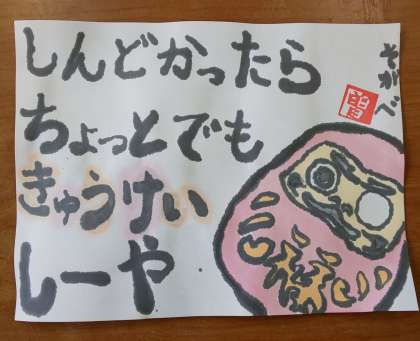 しんどかったら
ちょっとでも
きゅうけい
しーや
そがべ